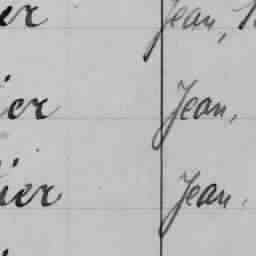 er Jean,
ier Jean,
ier Jean.